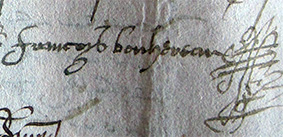 francoys bonhereau